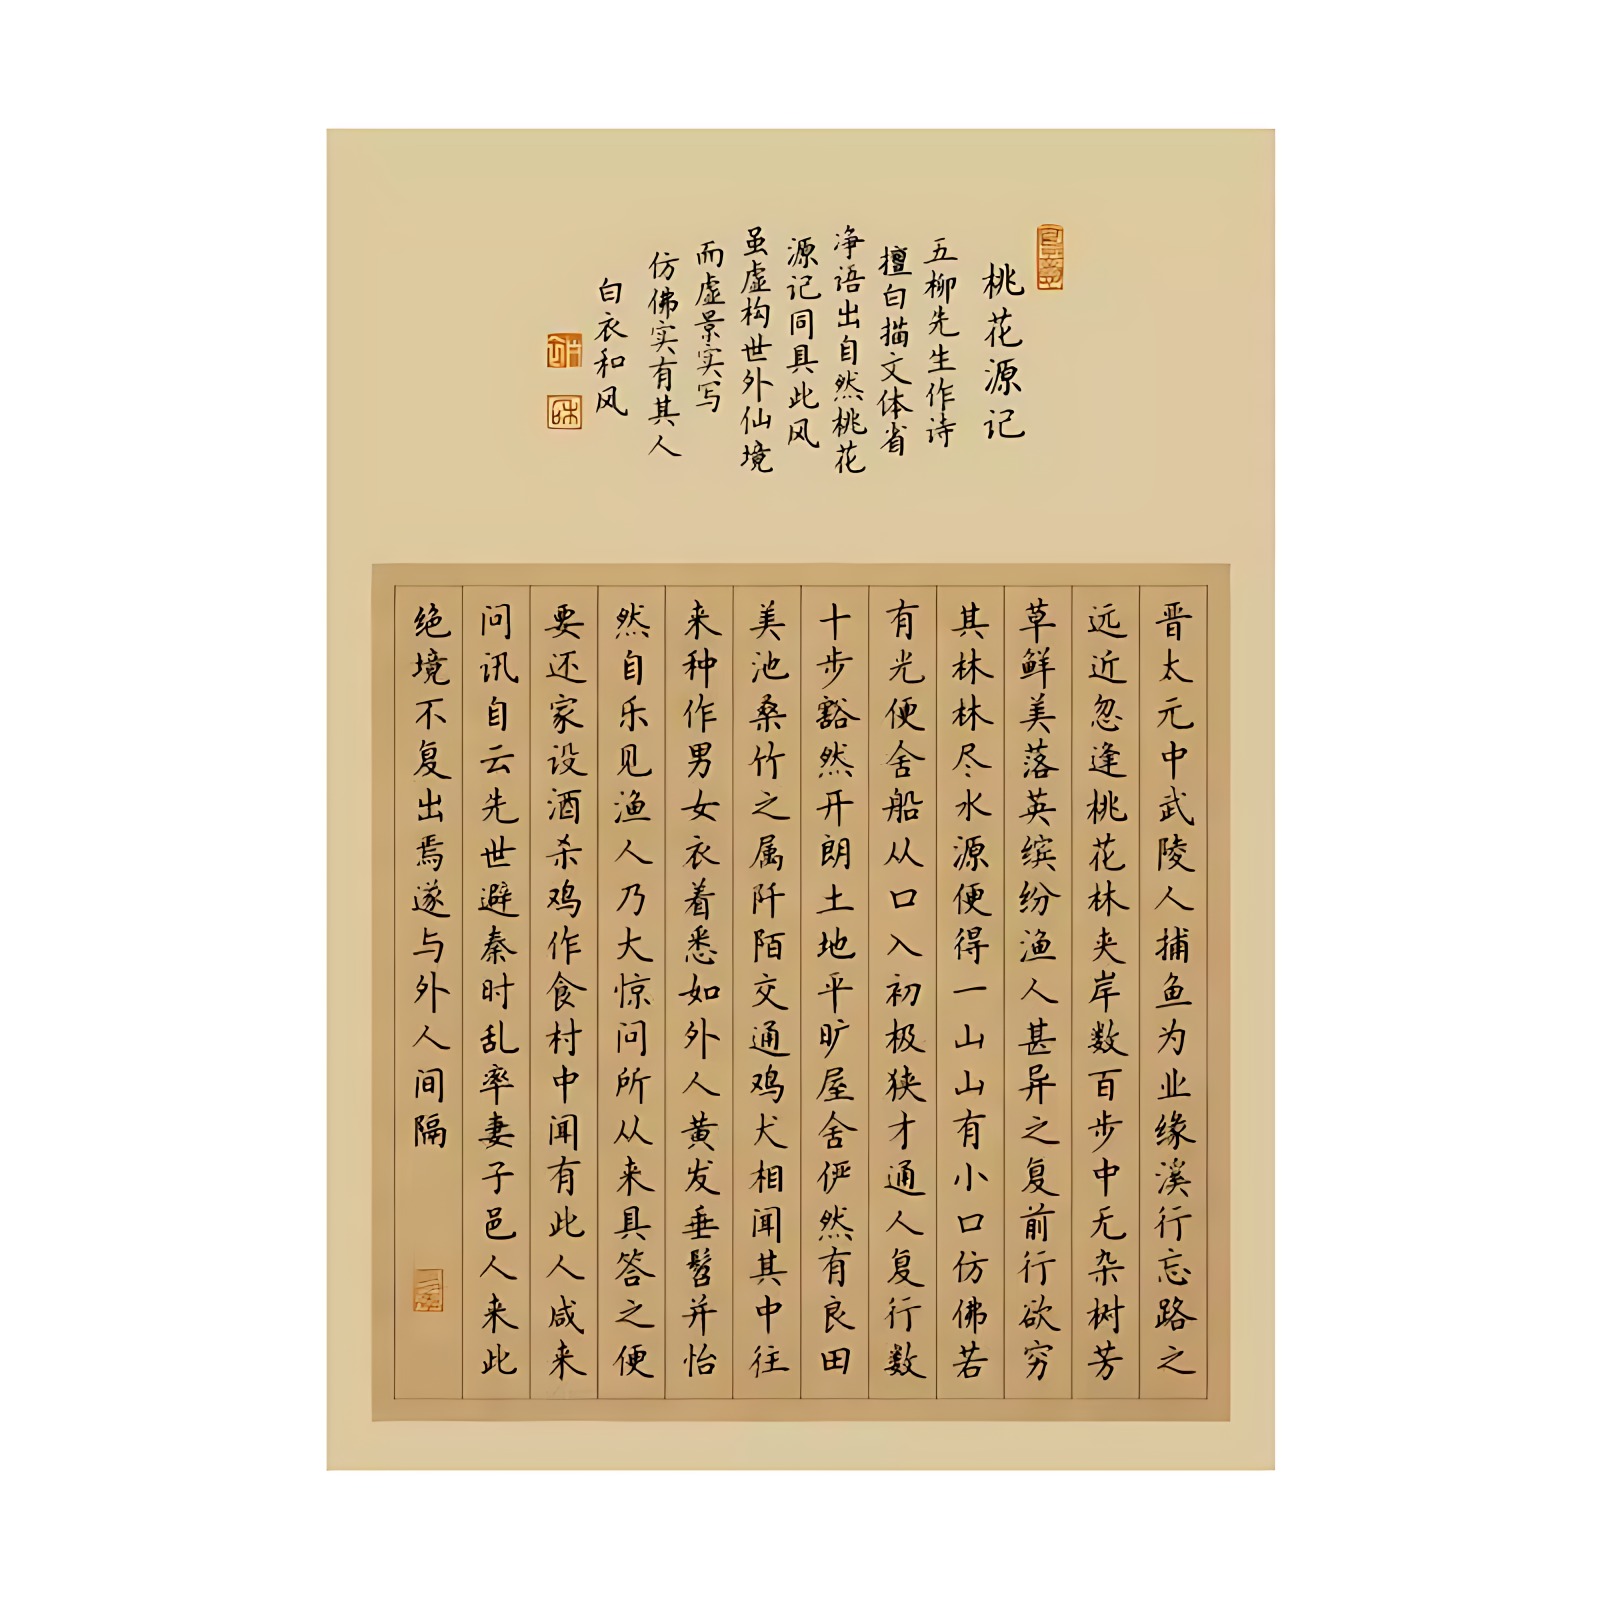 桃花源记
五柳先生作诗
擅白描文体省
净语出自然桃花
源记同具此风
虽虚构世外仙境
而虚景实写
仿佛实有其人
白衣和风
晋太元中武陵人捕鱼为业缘溪行忘路之
远近忽逢桃花林夹岸数百步中无杂树芳
草鲜美落英缤纷渔人甚异之复前行欲穷
其林林尽水源便得一山山有小口仿佛若
有光便舍船从口入初极狭才通人复行数
十步豁然开朗土地平旷屋舍俨然有良田
美池桑竹之属阡陌交通鸡犬相闻其中往
来种作男女衣着悉如外人黄发垂髫并怡
然自乐见渔人乃大惊问所从来具答之便
要还家设酒杀鸡作食村中闻有此人咸来
问讯自云先世避秦时乱率妻子邑人来此
绝境不复出焉遂与外人间隔